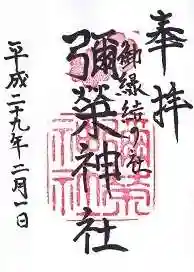 奉拝
御縁結の社
彌栄神社
平成二十九年二月一日